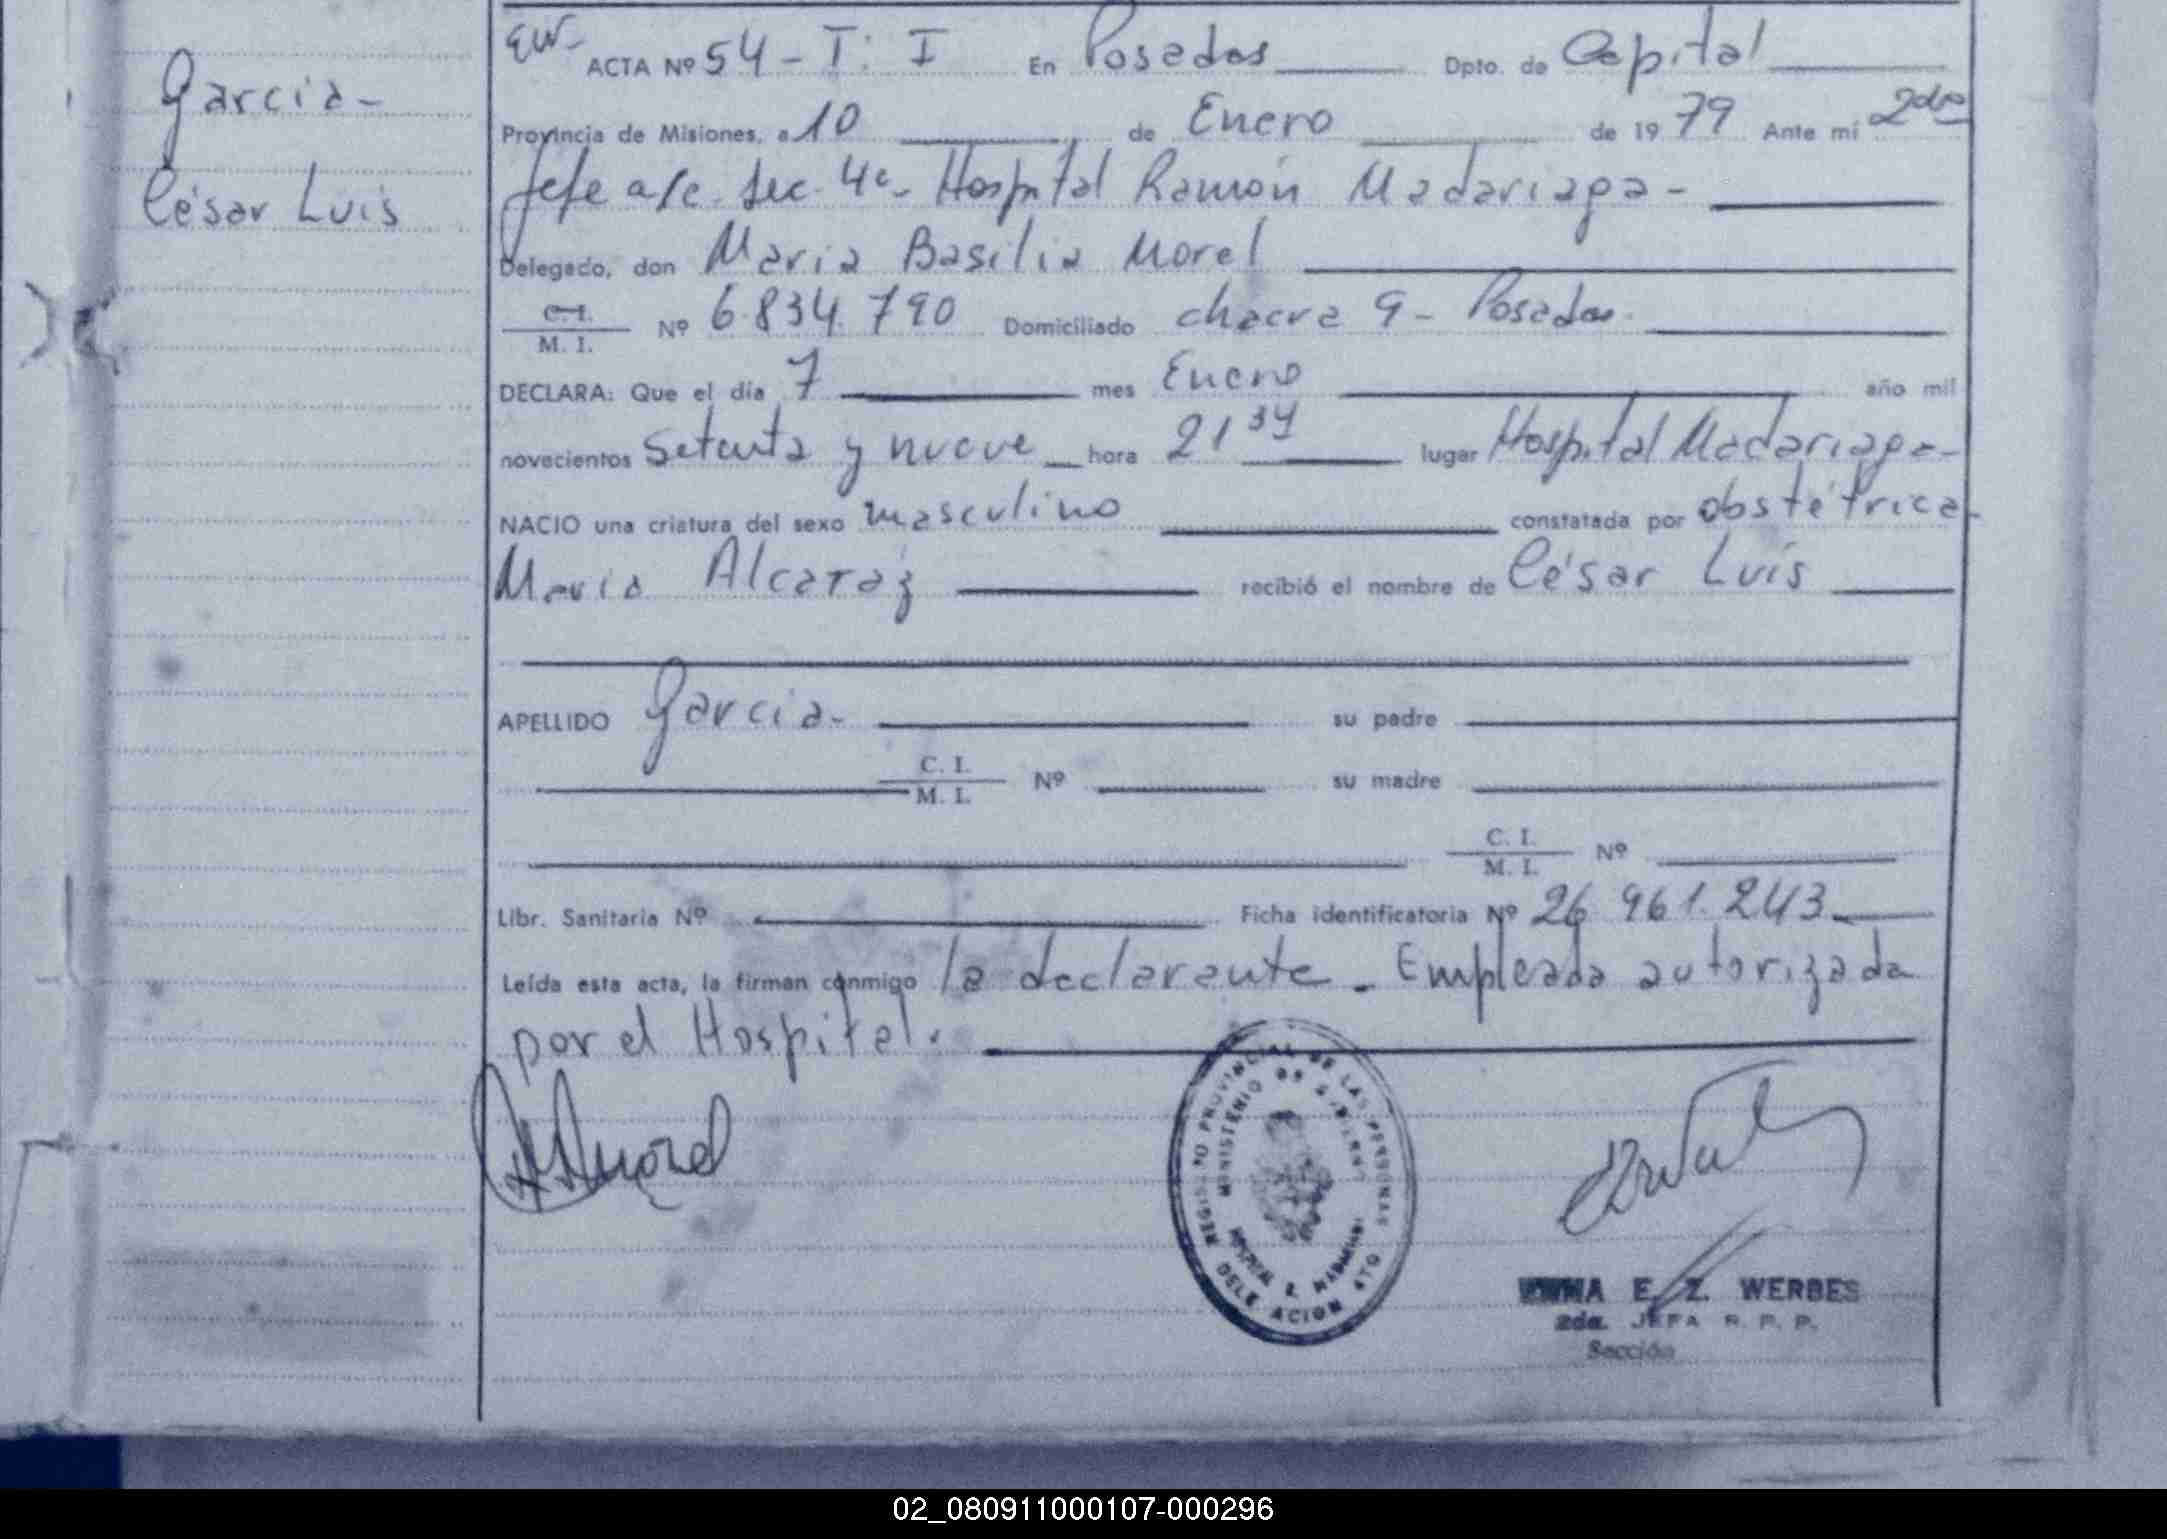 García-
César Luis
EW- ACTA Nº 54 - T: I En Posadas Dpto. de Capital
Provincia de Misiones, a 10 de Enero de 1979 Ante mí 2do
Jefe a/c. Sec. 4ª- Hospital Ramón Madariaga-
Delegado, don Maria Basilia Morel
C. I.
M. I. Nº 6.834.790 Domiciliado chacra 9 - Posadas.
DECLARA: Que el día 7 mes Enero año mil
novecientos Setenta y nueve hora 21 34 lugar Hospital Madariaga-
NACIO una criatura del sexo masculino constatada por obstétrica-
Maria Alcaraz recibió el nombre de César Luis
APELLIDO García- su padre
C. I.
M. I. Nº su madre
C. I.
M. I. Nº
Libr. Sanitaria Nº Ficha identificatoria Nº 26 961.243
Leída esta acta, la firman conmigo la declarante - Empleada autorizada
por el Hospital.
Morel
REGISTRO PROVINCIAL DE LAS PERSONAS
MINISTERIO DE GOBIERNO
DELEGACION 4TO
E. Z. WERBES
2da. JEFA R. P. P.
Sección
02_080911000107-000296